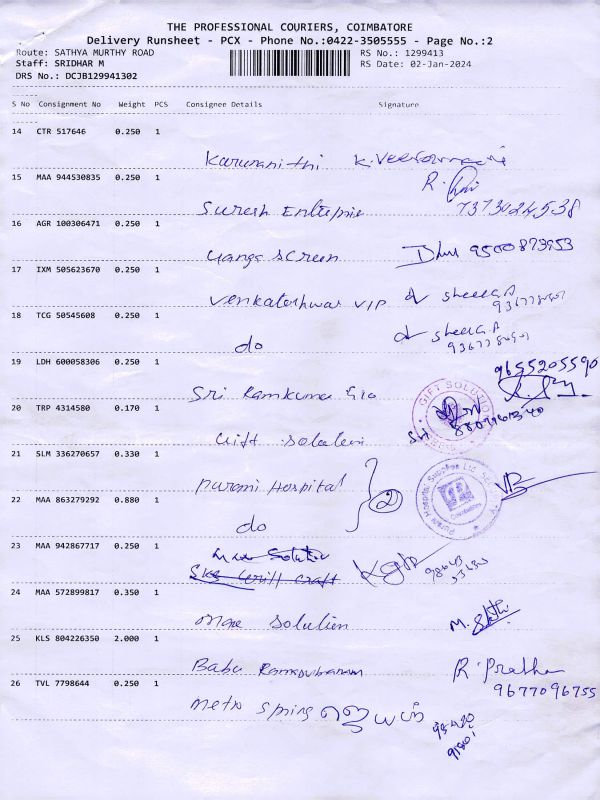 THE PROFESSIONAL COURIERS, COIMBATORE
Delivery Runsheet - PCX - Phone No.:0422-3505555 - Page No.:2
Route: SATHYA MURTHY ROAD RS No.: 1299413
Staff: SRIDHAR M RS Date: 02-Jan-2024
DRS No.: DCJB129941302
S No Consignment No Weight PCS Consignee Details Signature
14 CTR 517646 0.250 1
Karunanithi
15 MAA 944530835 0.250 1
Suresh 7373024538
16 AGR 100306471 0.250 1
Ganga Screen 9500873953
17 IXM 505623670 0.250 1
Venkateshwar VIP Sheela A
18 TCG 50545608 0.250 1
do Sheela A
19 LDH 600058306 0.250 1
9655205590
Sri Ramkumar
20 TRP 4314580 0.170 1
GIFT SOLUTION
Gift Solution
21 SLM 336270657 0.330 1
Purani Hospital
2
22 MAA 863279292 0.880 1
Purani Hospital Supplies
Coimbatore
do
23 MAA 942867717 0.250 1
24 MAA 572899817 0.350 1
Max Solution
25 KLS 804226350 2.000 1
Babu R. Pratha
9677096755
26 TVL 7798644 0.250 1
Metro Spring